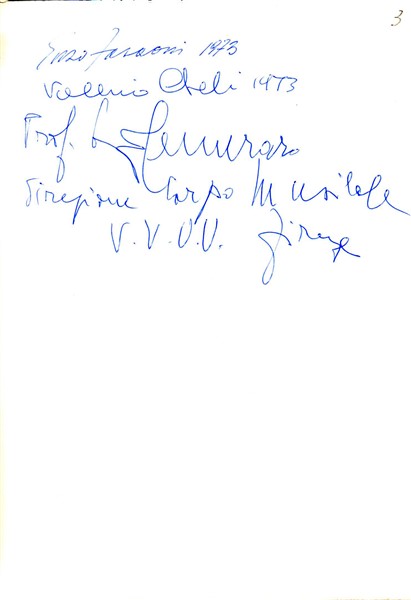 3
Enzo Faraoni 1973
Valerio Cheli 1973
Prof.
Direzione Corpo Musicale
V.V.U.U. Firenze